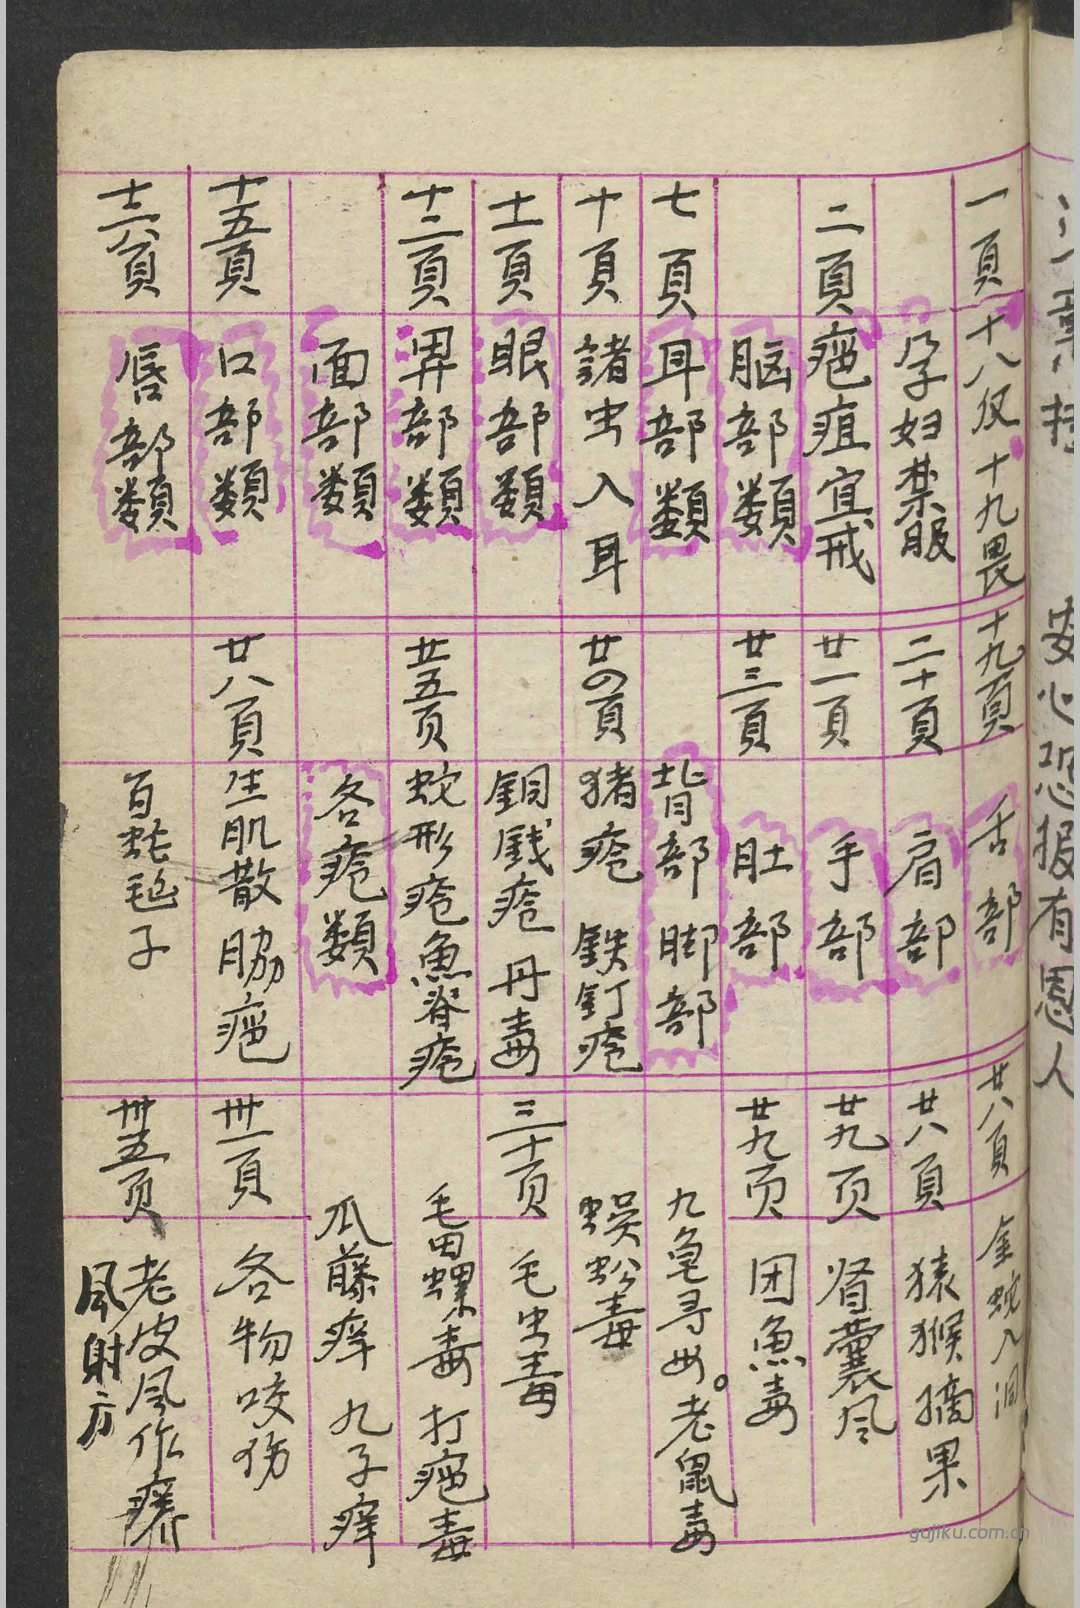 一頁 十八反 十九畏
孕妇禁服
二頁 疤疽宜戒
脑部類
七頁 耳部類
十頁 諸虫入耳
十一頁 眼部類
十二頁 鼻部類
面部類
十五頁 口部類
十六頁 唇部類
十九頁 舌部
二十頁 肩部
廿一頁 手部
廿三頁 肚部
背部 脚部
廿四頁 猪疮 鉄釘疮
銅銭疮 丹毒
廿五页 蛇形疮 魚脊疮
各疮類
廿八頁 生肌散 脇疤
百蛇毡子
廿八頁 金蛇入洞
廿八頁 猿猴摘果
廿九页 肾囊风
廿九页 团魚毒
九龟寻母。老鼠毒
蜈蚣毒
三十页 毛虫毒
毛田螺毒 打疤毒
瓜藤痒 九子痒
卅一頁 各物咬伤
卅五页 老皮风作癢
风射方
安心恐报有恩人
gujiku.com.cn